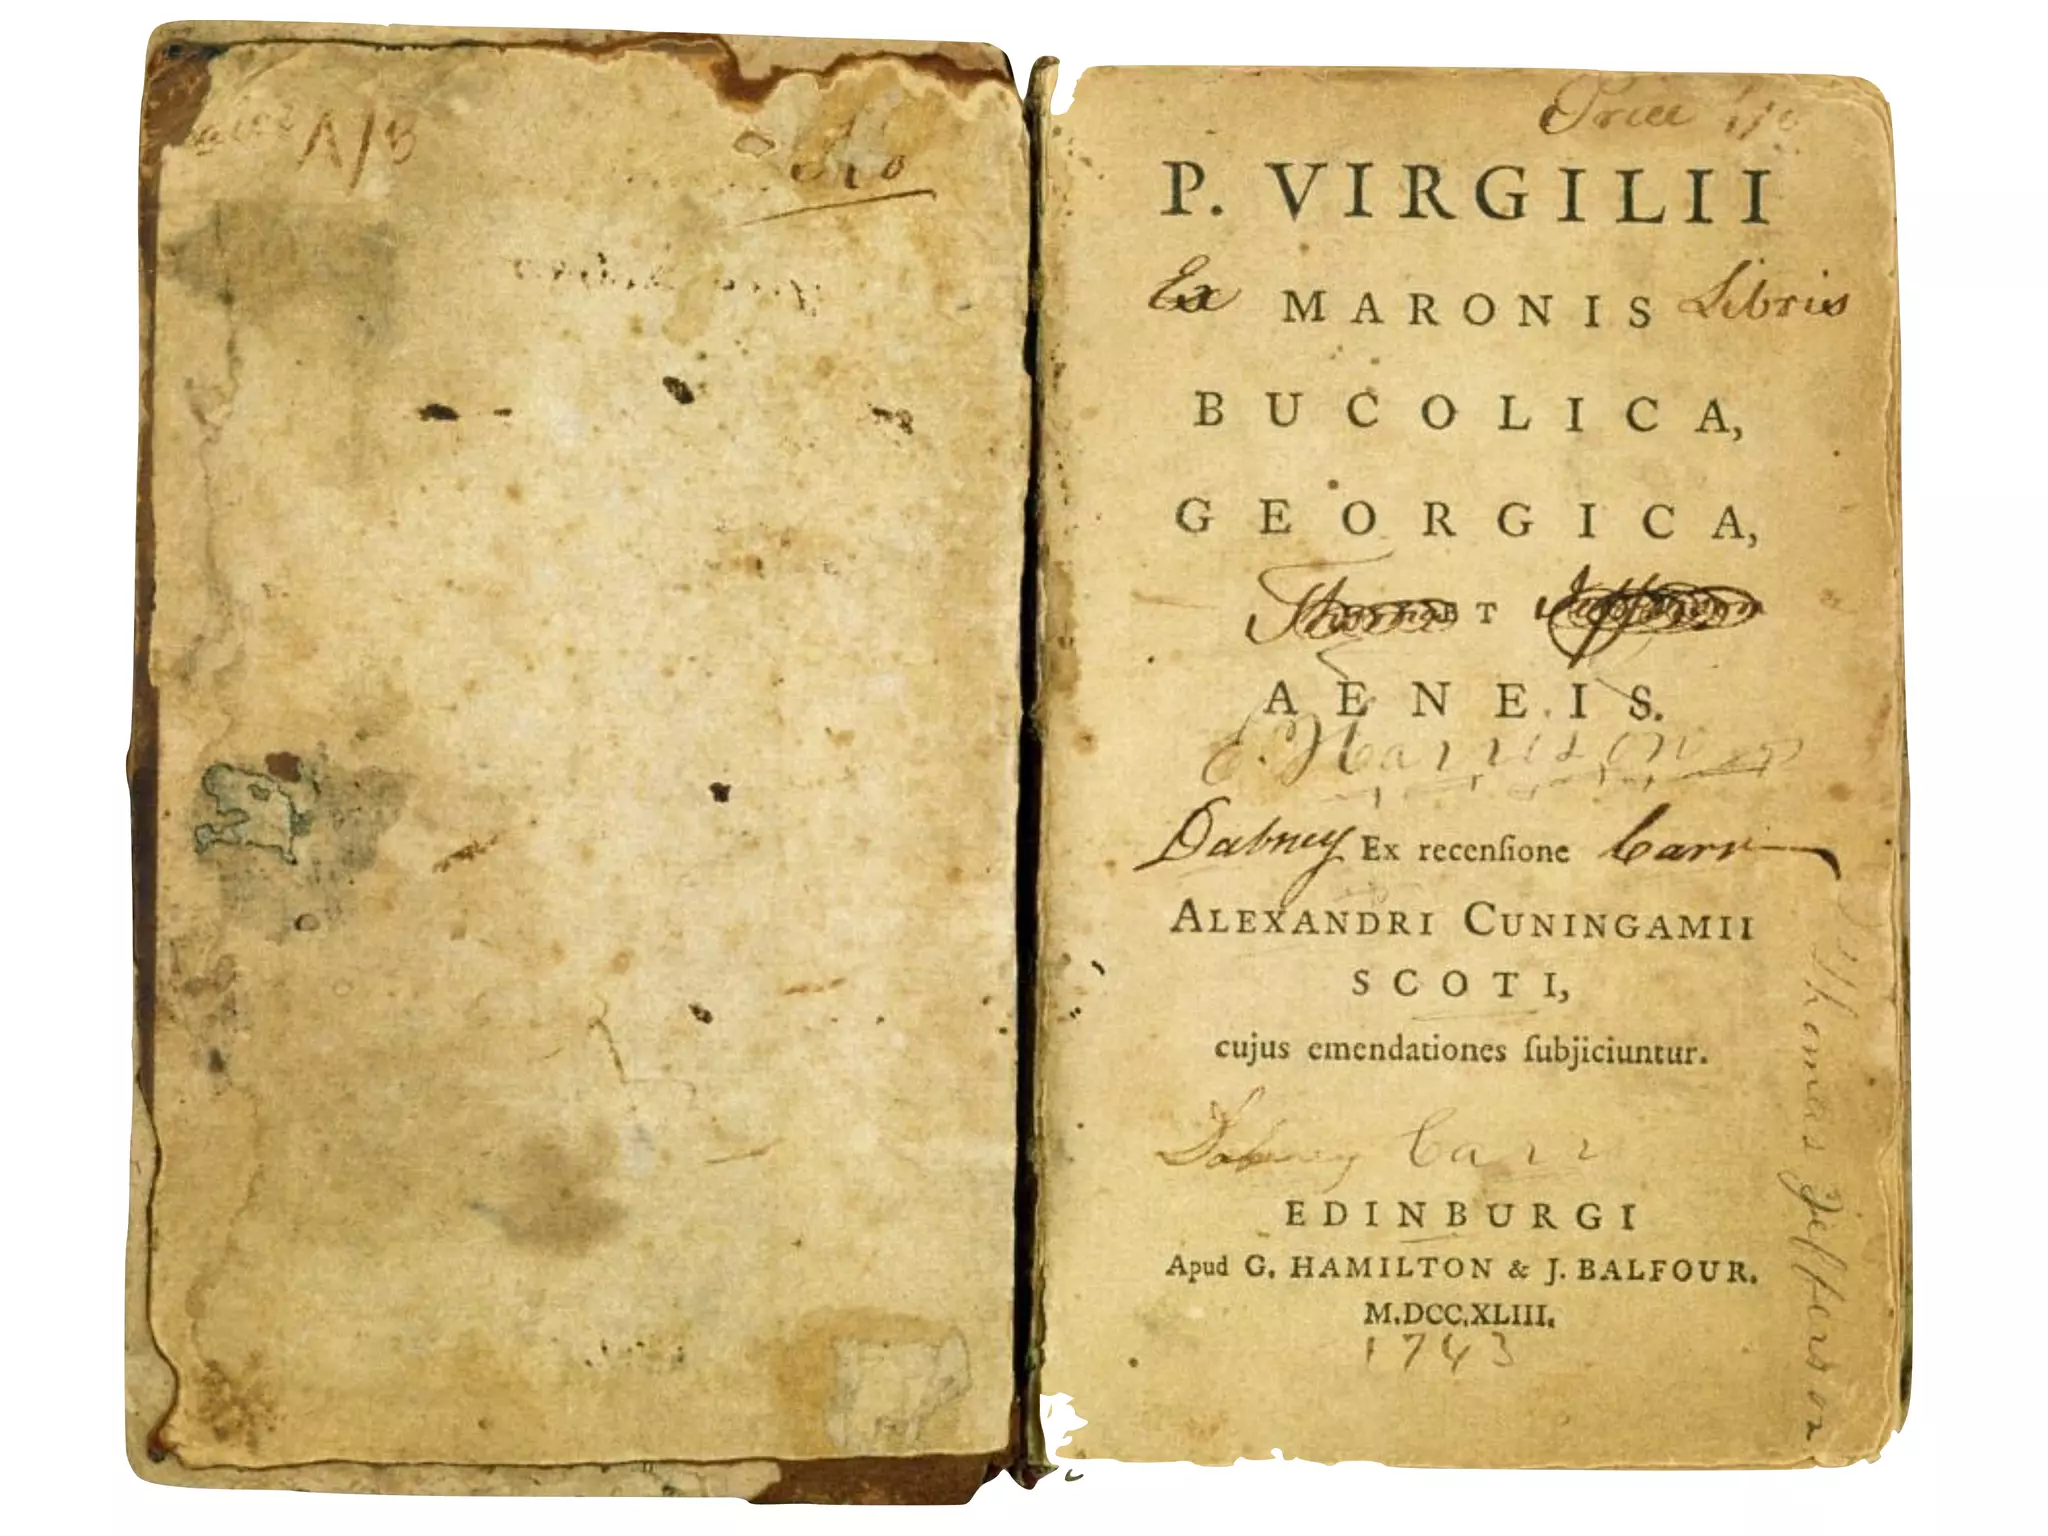 A/B
Price
P. VIRGILII
Ex MARONIS Libris
BUCOLICA,
GEORGICA,
Thomas ET Jefferson
AENEIS.
E. Harrison
Dabney Ex recenſione Carr
ALEXANDRI CUNINGAMII
SCOTI,
cujus emendationes ſubjiciuntur.
Dabney Carr
EDINBURGI
Apud G. HAMILTON & J. BALFOUR.
M.DCC.XLIII.
1743
Thomas Jefferson